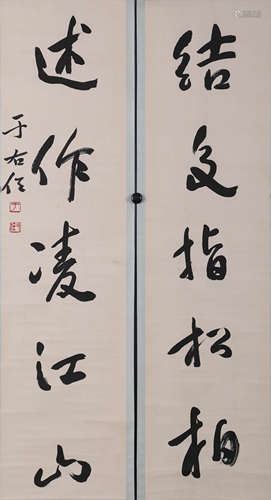 结交指松柏
述作凌江山
于右任